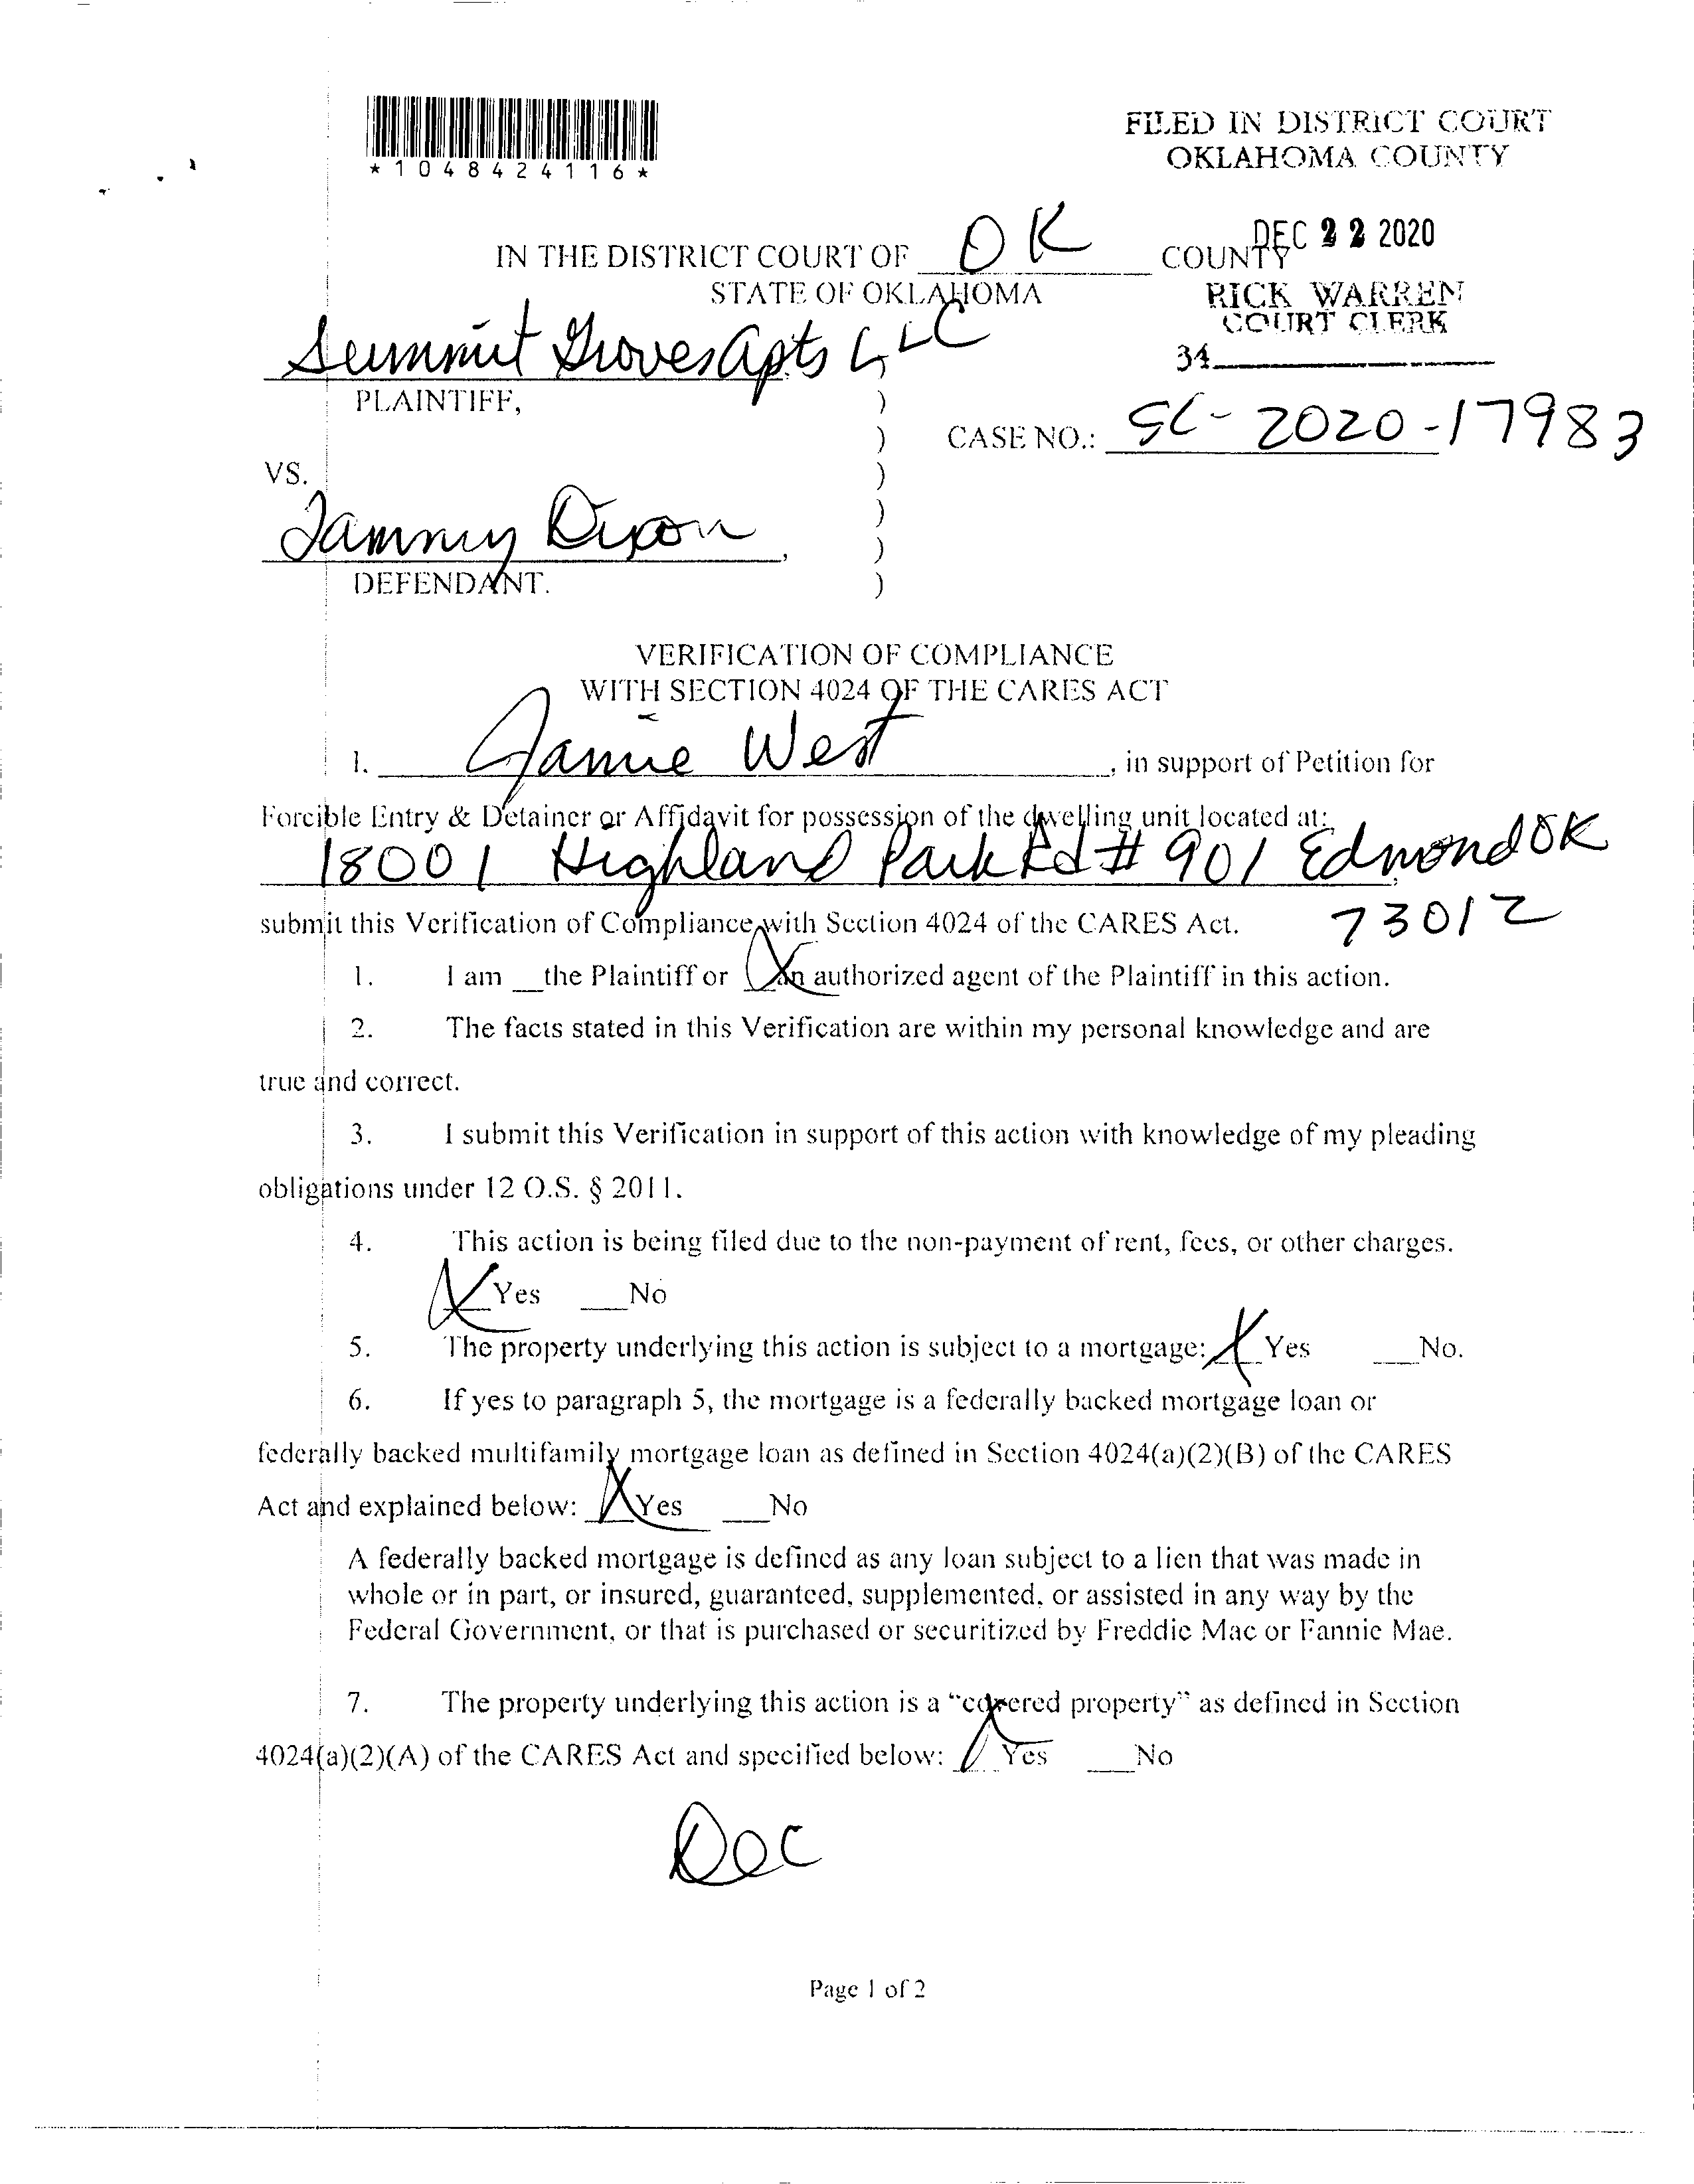 *1048424116*
FILED IN DISTRICT COURT
OKLAHOMA COUNTY
DEC 22 2020
RICK WARREN
COURT CLERK
34
IN THE DISTRICT COURT OF OK COUNTY
STATE OF OKLAHOMA
Summit Groves Apts LLC
PLAINTIFF,
)
)
)
)
)
)
)
CASE NO.: SC-2020-17983
VS.
Tammy Dixon,
DEFENDANT.
VERIFICATION OF COMPLIANCE
WITH SECTION 4024 OF THE CARES ACT
I. Jamie West, in support of Petition for
Forcible Entry & Detainer or Affidavit for possession of the dwelling unit located at:
18001 Highland Park Rd # 901 Edmond OK
73012
submit this Verification of Compliance with Section 4024 of the CARES Act.
1. I am __the Plaintiff or X an authorized agent of the Plaintiff in this action.
2. The facts stated in this Verification are within my personal knowledge and are
true and correct.
3. I submit this Verification in support of this action with knowledge of my pleading
obligations under 12 O.S. § 2011.
4. This action is being filed due to the non-payment of rent, fees, or other charges.
X Yes __No
5. The property underlying this action is subject to a mortgage: X Yes __No.
6. If yes to paragraph 5, the mortgage is a federally backed mortgage loan or
federally backed multifamily mortgage loan as defined in Section 4024(a)(2)(B) of the CARES
Act and explained below: X Yes __No
A federally backed mortgage is defined as any loan subject to a lien that was made in
whole or in part, or insured, guaranteed, supplemented, or assisted in any way by the
Federal Government, or that is purchased or securitized by Freddic Mac or Fannie Mae.
7. The property underlying this action is a “covered property” as defined in Section
4024(a)(2)(A) of the CARES Act and specified below: X Yes __No
Dec
Page 1 of 2